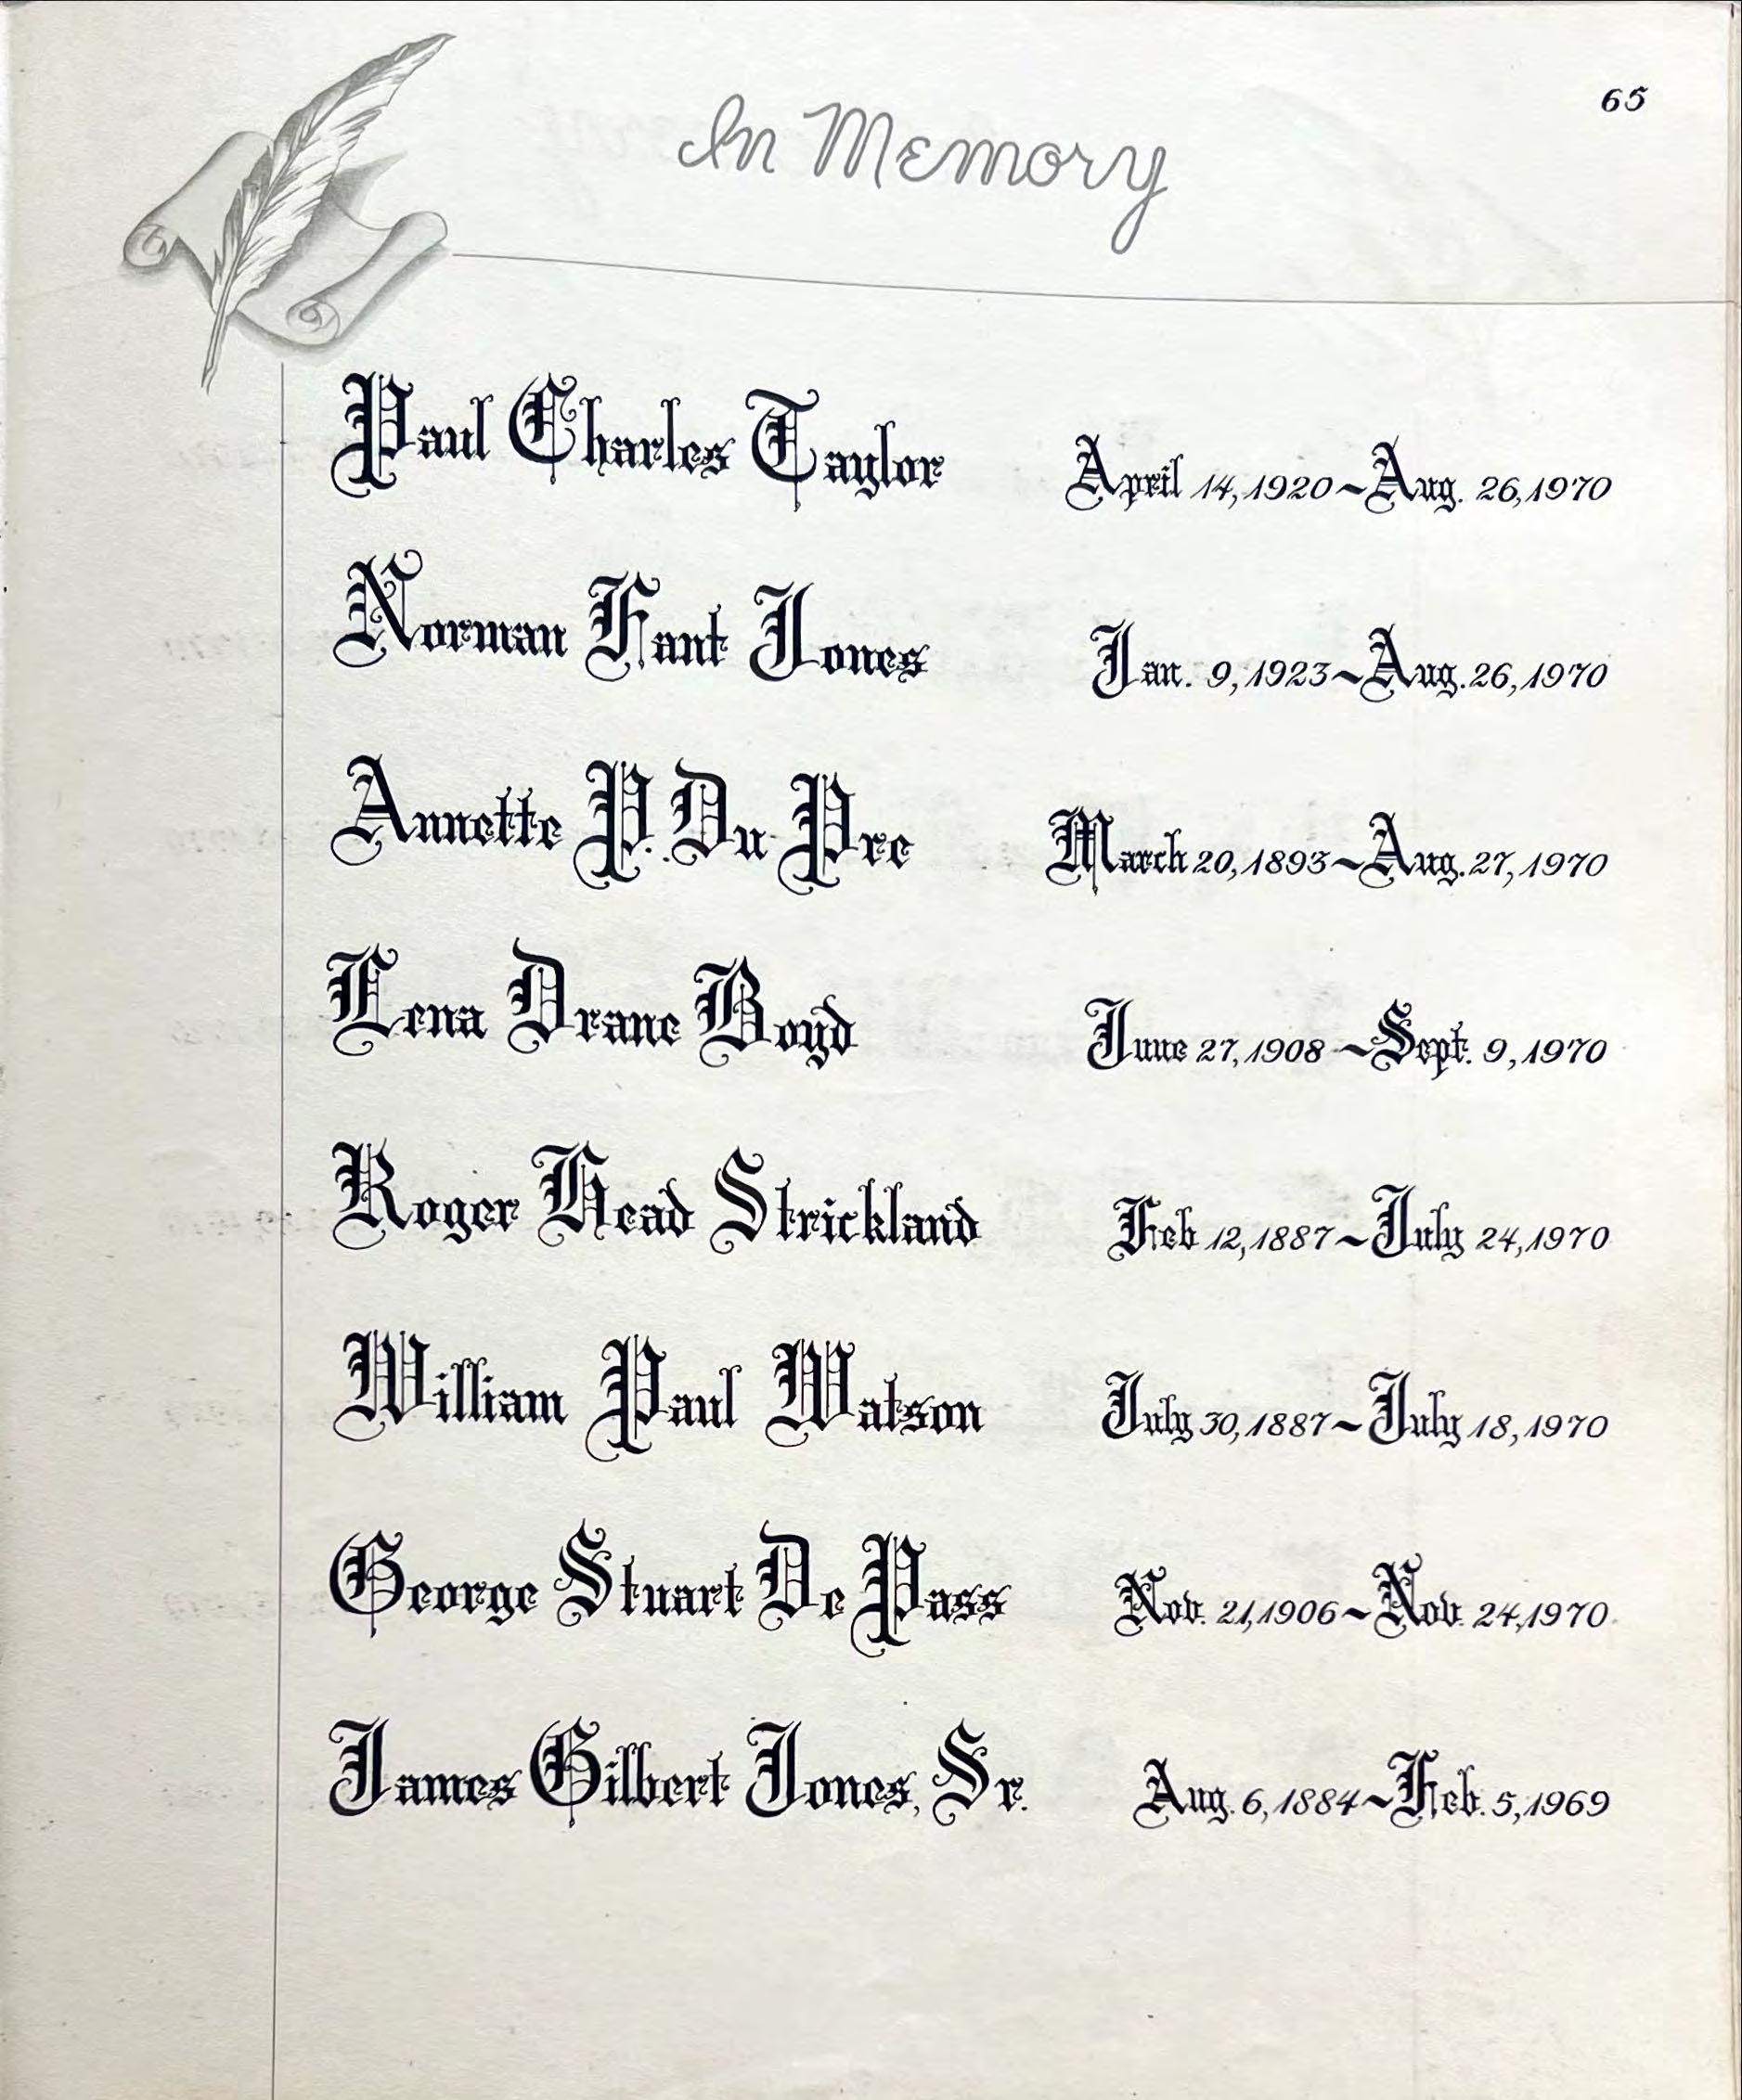 65
In Memory
Paul Charles Taylor April 14, 1920 ~ Aug. 26, 1970
Norman Fant Jones Jan. 9, 1923 ~ Aug. 26, 1970
Annette P. Du Pre March 20, 1893 ~ Aug. 27, 1970
Lena Drane Boyd June 27, 1908 ~ Sept. 9, 1970
Roger Head Strickland Feb 12, 1887 ~ July 24, 1970
William Paul Watson July 30, 1887 ~ July 18, 1970
George Stuart De Pass Nov. 21, 1906 ~ Nov. 24, 1970
James Gilbert Jones, Sr. Aug. 6, 1884 ~ Feb. 5, 1969